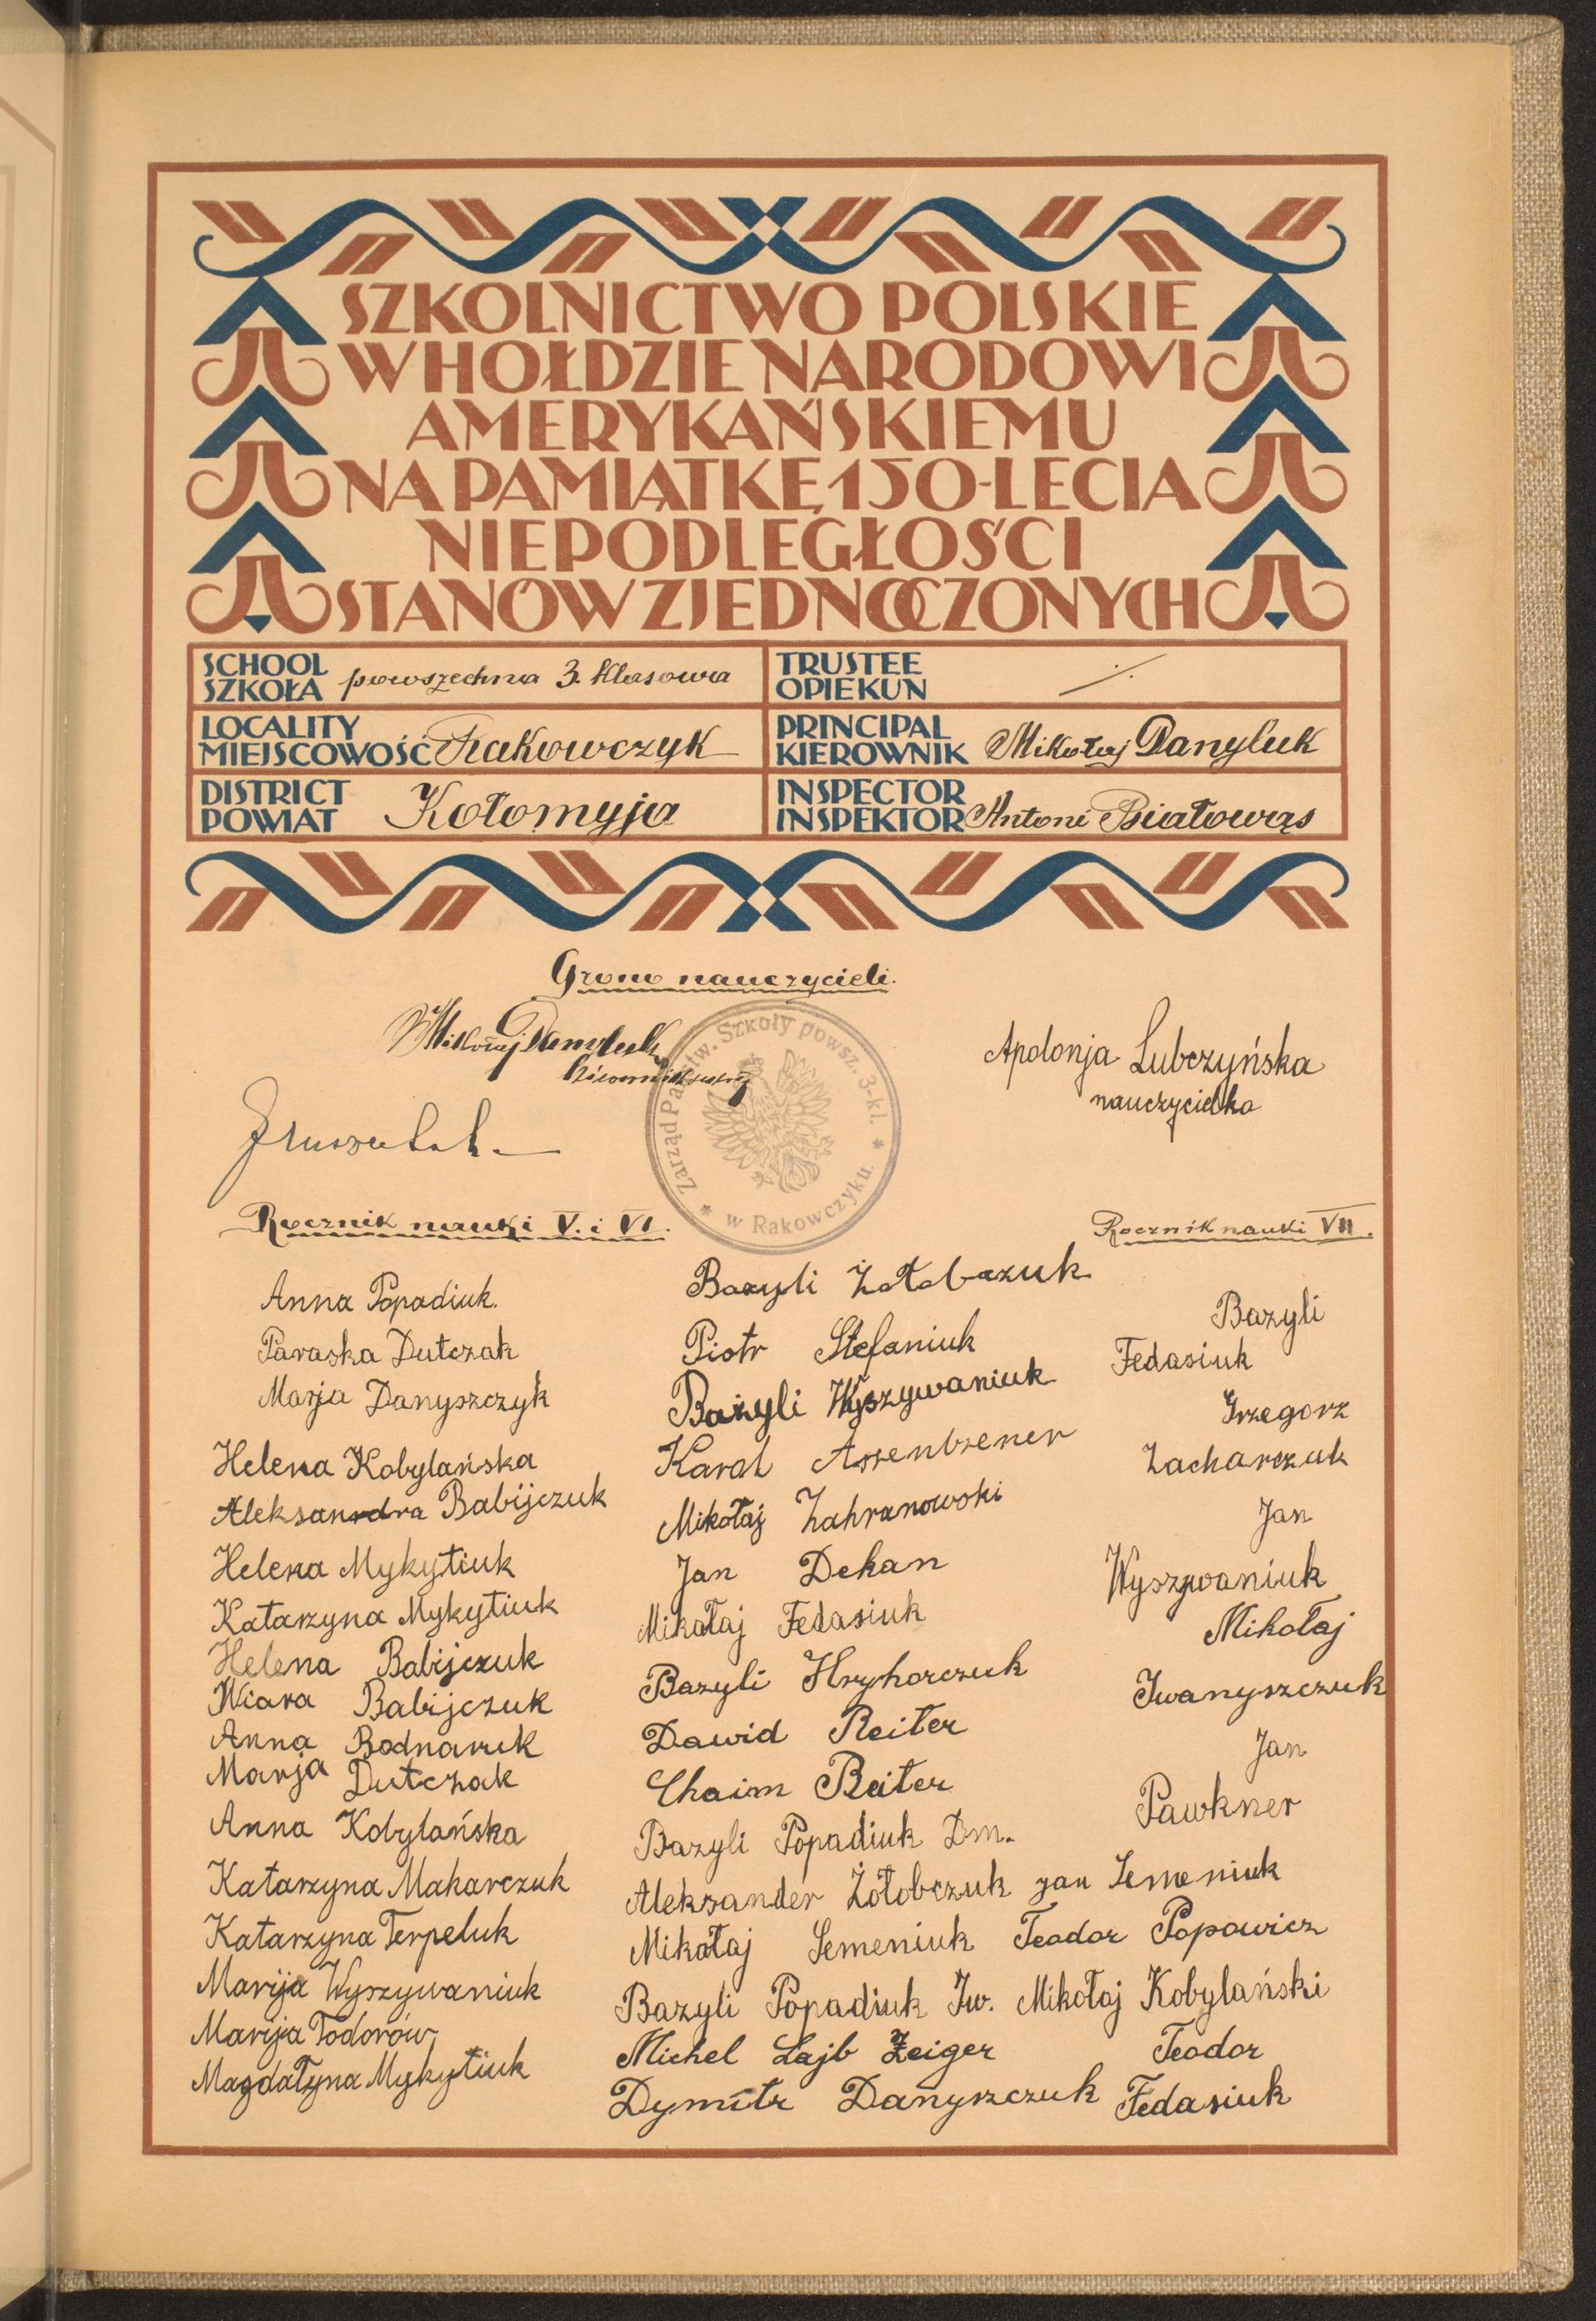 SZKOLNICTWO POLSKIE
W HOŁDZIE NARODOWI
AMERYKAŃSKIEMU
NA PAMIĄTKĘ 150-LECIA
NIEPODLEGŁOŚCI
STANÓW ZJEDNOCZONYCH
SCHOOL
SZKOŁA powszechna 3. klasowa
TRUSTEE
OPIEKUN
LOCALITY
MIEJSCOWOŚĆ Rakowczyk
PRINCIPAL
KIEROWNIK Mikołaj Danyluk
DISTRICT
POWIAT Kołomyja
INSPECTOR
INSPEKTOR Antoni Białowąs
Grono nauczycieli.
Mikołaj Danyluk
Apolonja Lubczyńska
nauczycielka
Zarząd Państw. Szkoły powsz. 3-kl.
* w Rakowczyku. *
Rocznik nauki V. i VI.
Anna Popadiuk.
Paraska Dutczak
Marja Danyszczyk
Helena Kobylańska
Aleksandra Babijczuk
Helena Mykytiuk
Katarzyna Mykytiuk
Helena Babijczuk
Wiara Babijczuk
Anna Bodnaruk
Marja Dutczak
Anna Kobylańska
Katarzyna Makarczuk
Katarzyna Terpeluk
Marija Wyszywaniuk
Marija Todorów
Magdałyna Mykytiuk
Bazyli Żołobczuk
Piotr Stefaniuk
Bazyli Wyszywaniuk
Karol
Mikołaj Zahranowski
Jan Dekan
Mikołaj Fedasiuk
Bazyli Hryhorczuk
Dawid Reiter
Chaim Reiter
Bazyli Popadiuk Dm.
Aleksander Żołobczuk
Mikołaj Semeniuk
Bazyli Popadiuk Iw.
Michel Lajb Zeiger
Dymitr Danyszczuk
Rocznik nauki VII.
Bazyli
Fedasiuk
Grzegorz
Zacharczuk
Jan
Wyszywaniuk
Mikołaj
Iwanyszczuk
Jan
Pawkner
Jan Semeniuk
Teodor Popowicz
Mikołaj Kobylański
Teodor
Fedasiuk